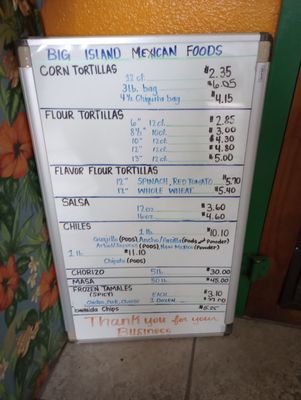 BIG ISLAND MEXICAN FOODS
CORN TORTILLAS
12 ct. $2.35
3lb. bag $6.05
4½ Chiquita bag $4.15
FLOUR TORTILLAS
6" 12ct. $2.85
8½" 10ct. $3.00
10" 12ct. $4.30
12" 12ct. $4.80
13" 12ct. $5.00
FLAVOR FLOUR TORTILLAS
12" SPINACH, RED TOMATO $5.70
12" WHOLE WHEAT $5.40
SALSA
12oz $3.60
16oz $4.60
CHILES
1 lb. $10.10
Guajillo (PODS) Ancho/Pasilla (Pods Powder)
(PODS) New Mexico (Powder)
1 lb $11.10
Chipotle (PODS)
CHORIZO 5lb. $30.00
MASA 50 lb. $45.00
FROZEN TAMALES EACH $3.10
(SPICY) Pork, Cheese 1 DOZEN
Chips
Thank you for your
Business